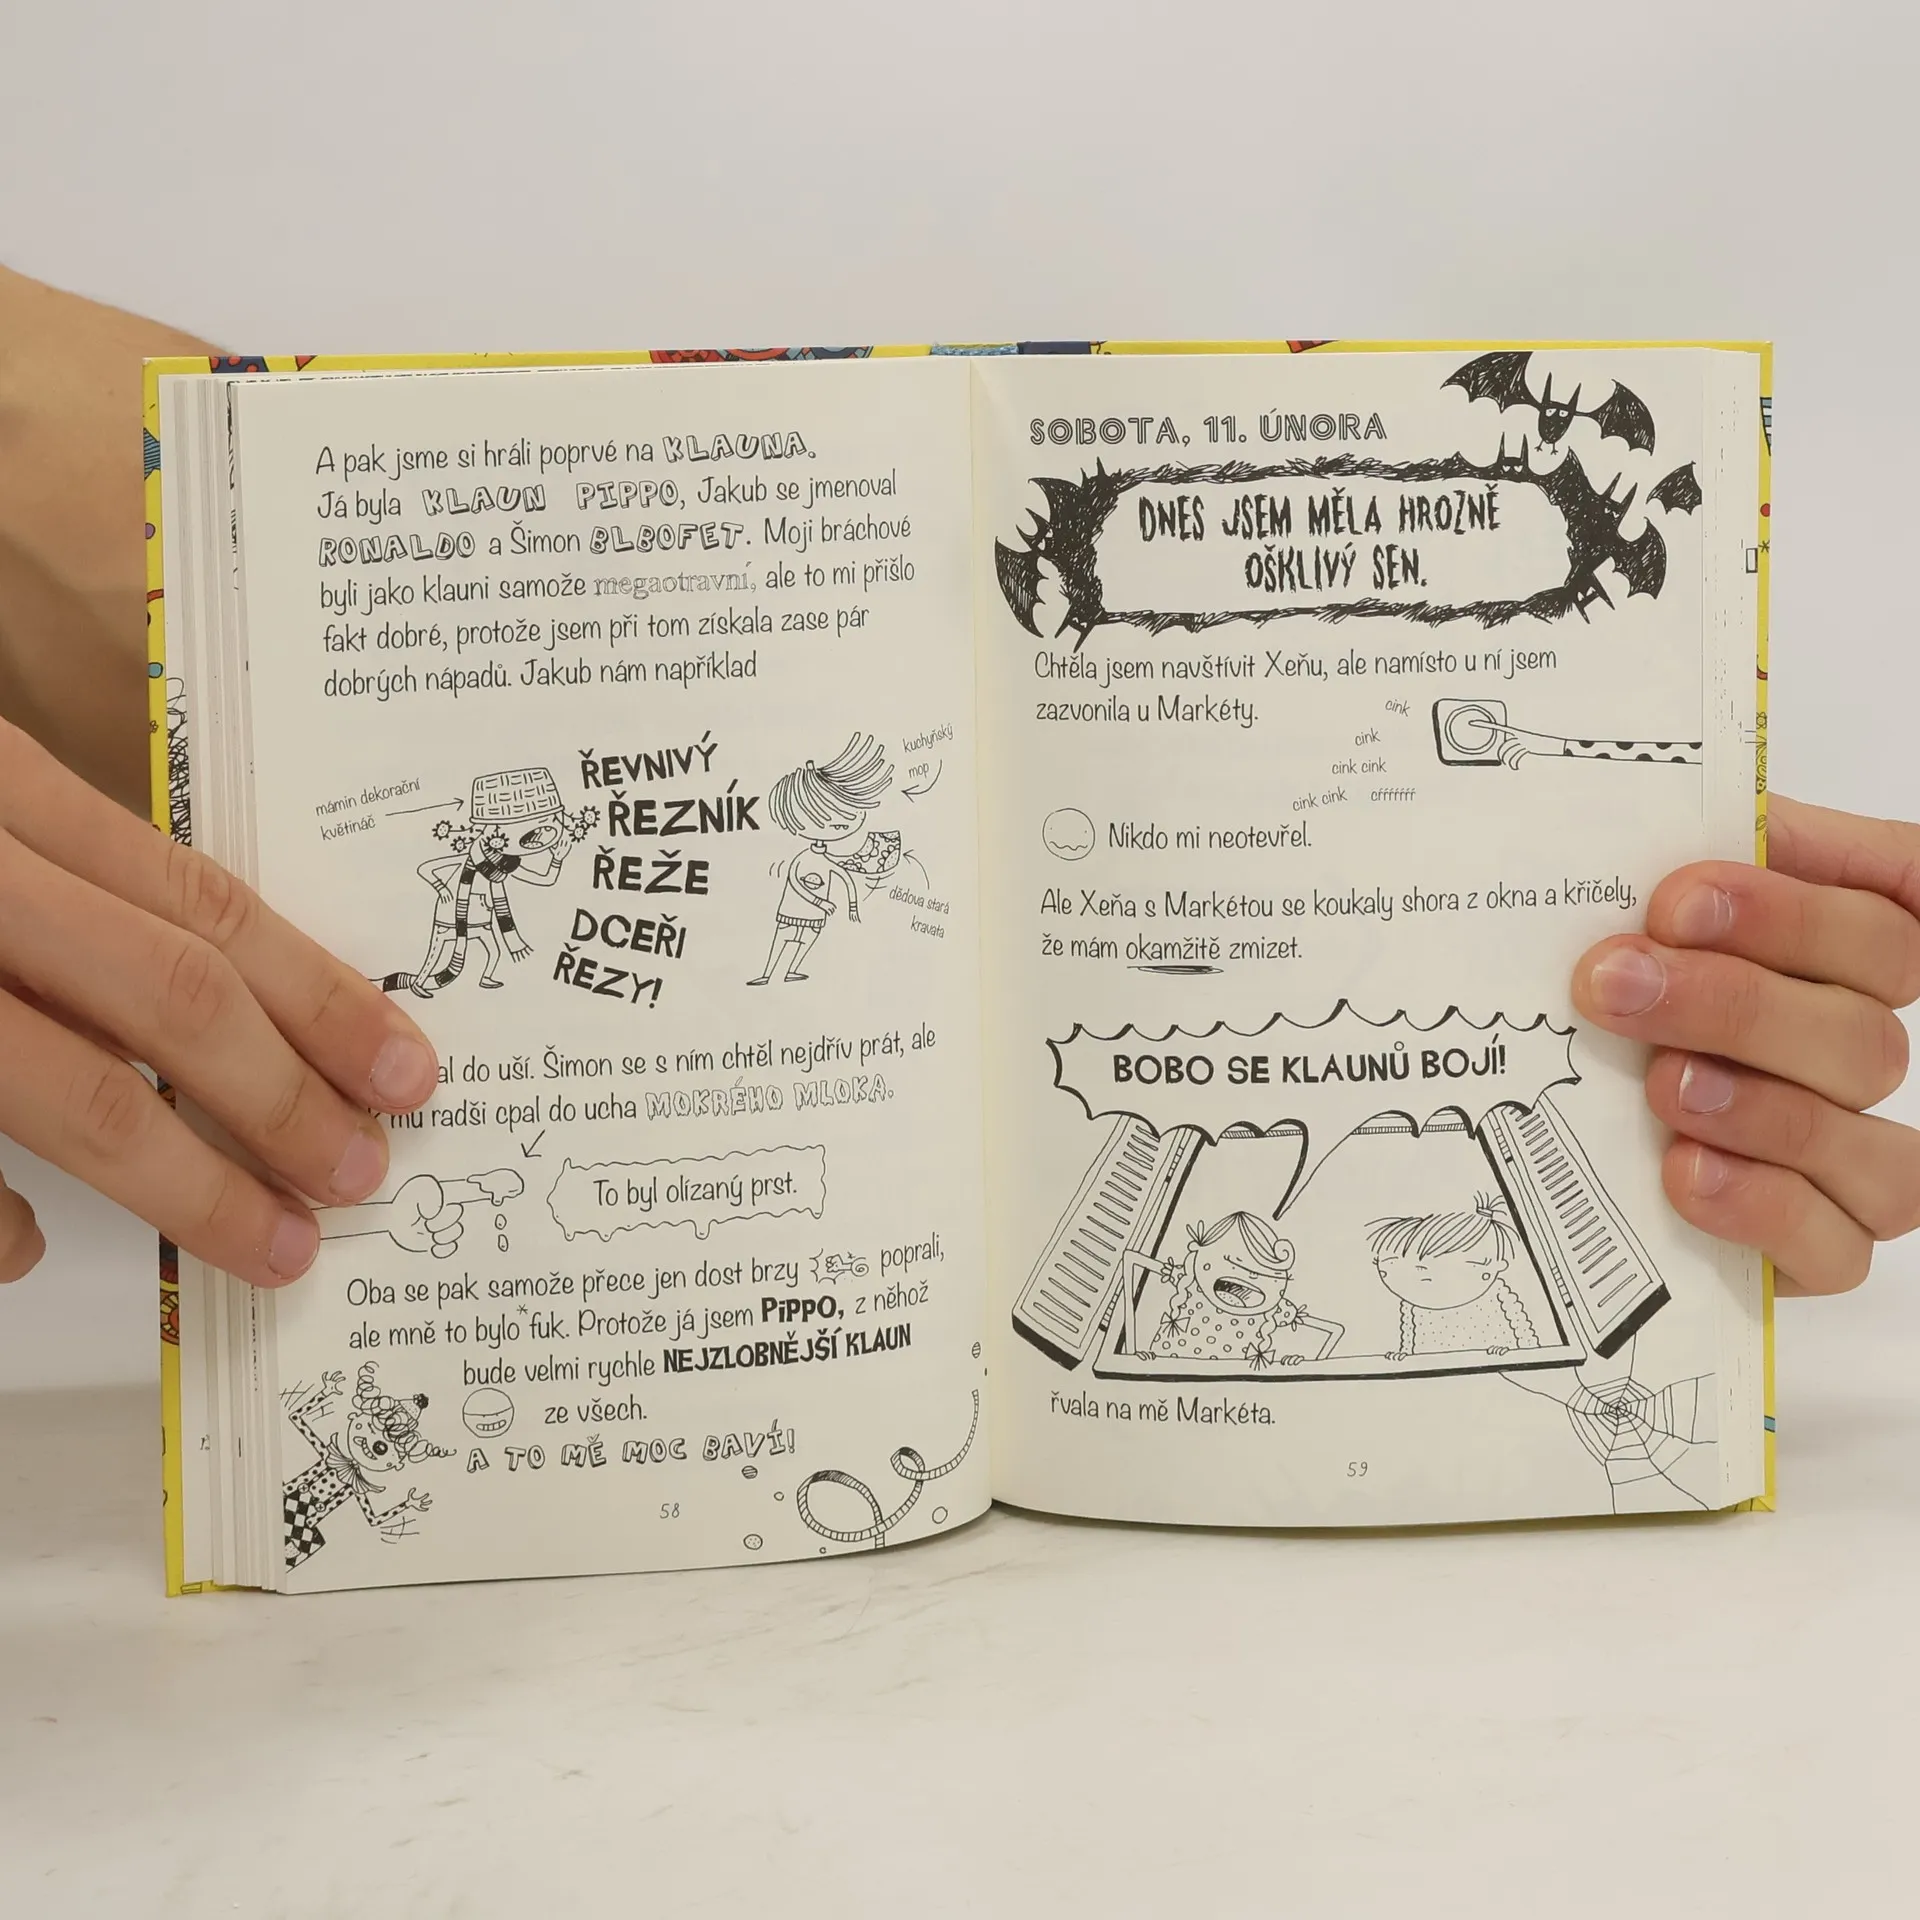 A pak jsme si hráli poprvé na KLAUNA.
Já byla KLAUN PIPPO, Jakub se jmenoval
RONALDO a Šimon BLBOFET. Moji bráchové
byli jako klauni samože megaotravní, ale to mi přišlo
fakt dobré, protože jsem při tom získala zase pár
dobrých nápadů. Jakub nám například
mámin dekorační
květináč
ŘEVNIVÝ
ŘEZNÍK
ŘEŽE
DCEŘI
ŘEZY!
kuchyňský
mop
dědova stará
kravata
al do uší. Šimon se s ním chtěl nejdřív prát, ale
mu radši cpal do ucha MOKRÉHO MLOKA.
To byl olízaný prst.
Oba se pak samože přece jen dost brzy poprali,
ale mně to bylo* fuk. Protože já jsem PiPPO, z něhož
bude velmi rychle NEJZLOBNĚJŠÍ KLAUN
ze všech.
A TO MĚ MOC BAVÍ!
58
SOBOTA, 11. ÚNORA
DNES JSEM MĚLA HROZNĚ
OŠKLIVÝ SEN.
Chtěla jsem navštívit Xeňu, ale namísto u ní jsem
zazvonila u Markéty.
cink
cink
cink cink
cink cink crrrrrrr
Nikdo mi neotevřel.
Ale Xeňa s Markétou se koukaly shora z okna a křičely,
že mám okamžitě zmizet.
BOBO SE KLAUNŮ BOJÍ!
řvala na mě Markéta.
59